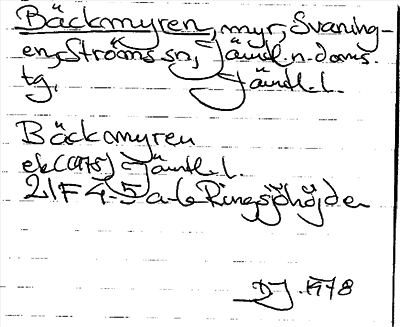 Bäckmyren, myr, Svaning-
en, Ströms sn, Jämtl. n. doms.
tg, Jämtl. l.
Bäckmyren
ek (1975) Jämtl. l.
21F 4-5 a-b Ringsjöhöjden
DJ 1978